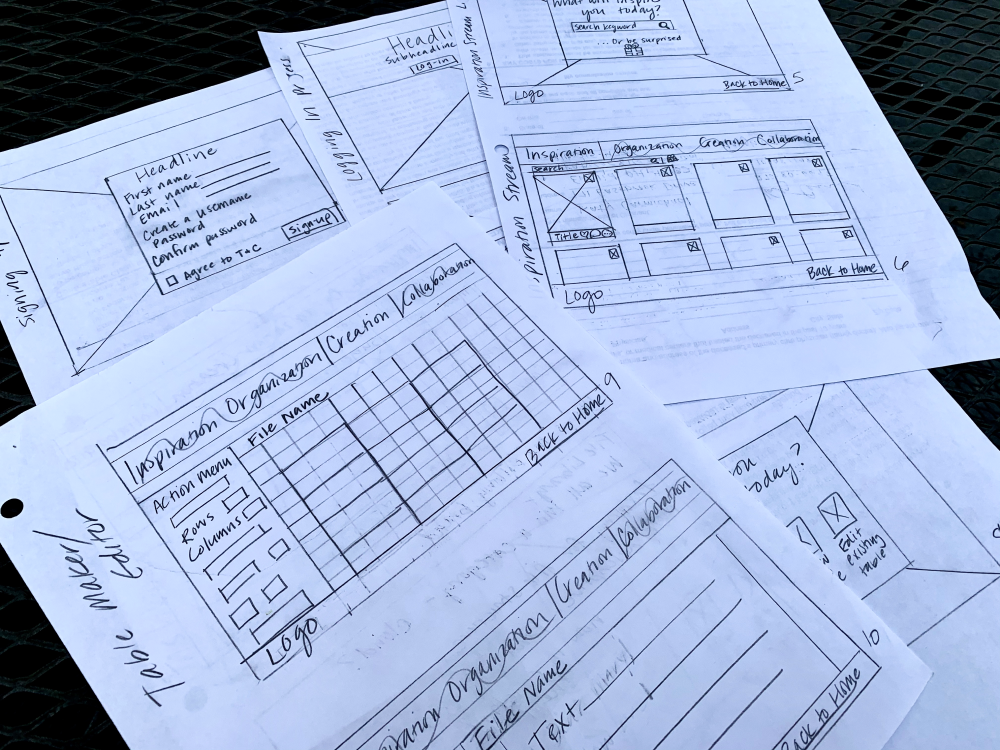 Signing
Headline
First name
Last name
Email
Create a username
Password
Confirm password
Agree to T+C
Sign-up
Logging In
Headli
Subheadline
Log-in
Inspiration Stream
you today?
Search keyword
...Or be surprised
Logo
Back to Home
5
Inspiration Organization Creation Collaboration
Search
Title
Logo
Back to Home
6
piration Stream
Table Maker/
Editor
Inspiration Organization Creation Collaboration
Action Menu
File Name
Rows
Columns
Logo
Back to Home
9
piration Organization Creation Collaboration
File Name
Text
Back to Home
10
on
today?
Edit
existing
table